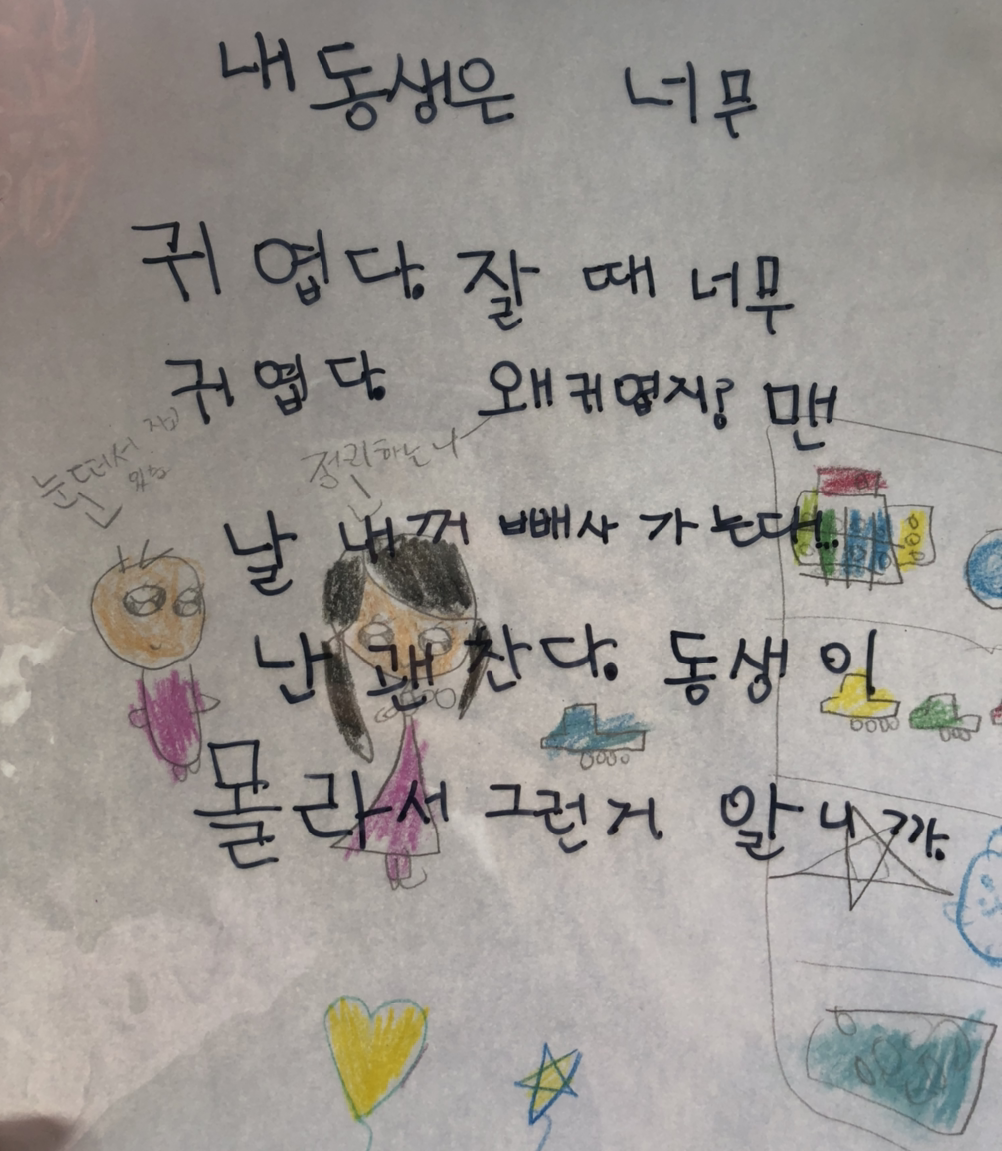 내 동생은 너무
귀 엽다. 잘 때 너무
귀 엽다. 왜 귀엽지? 맨
날 내꺼 빼사 가 는대!..
난 괜 찬다. 동생 이
몰라서 그런거 알 니 까.
눈떠서
정리하는 나